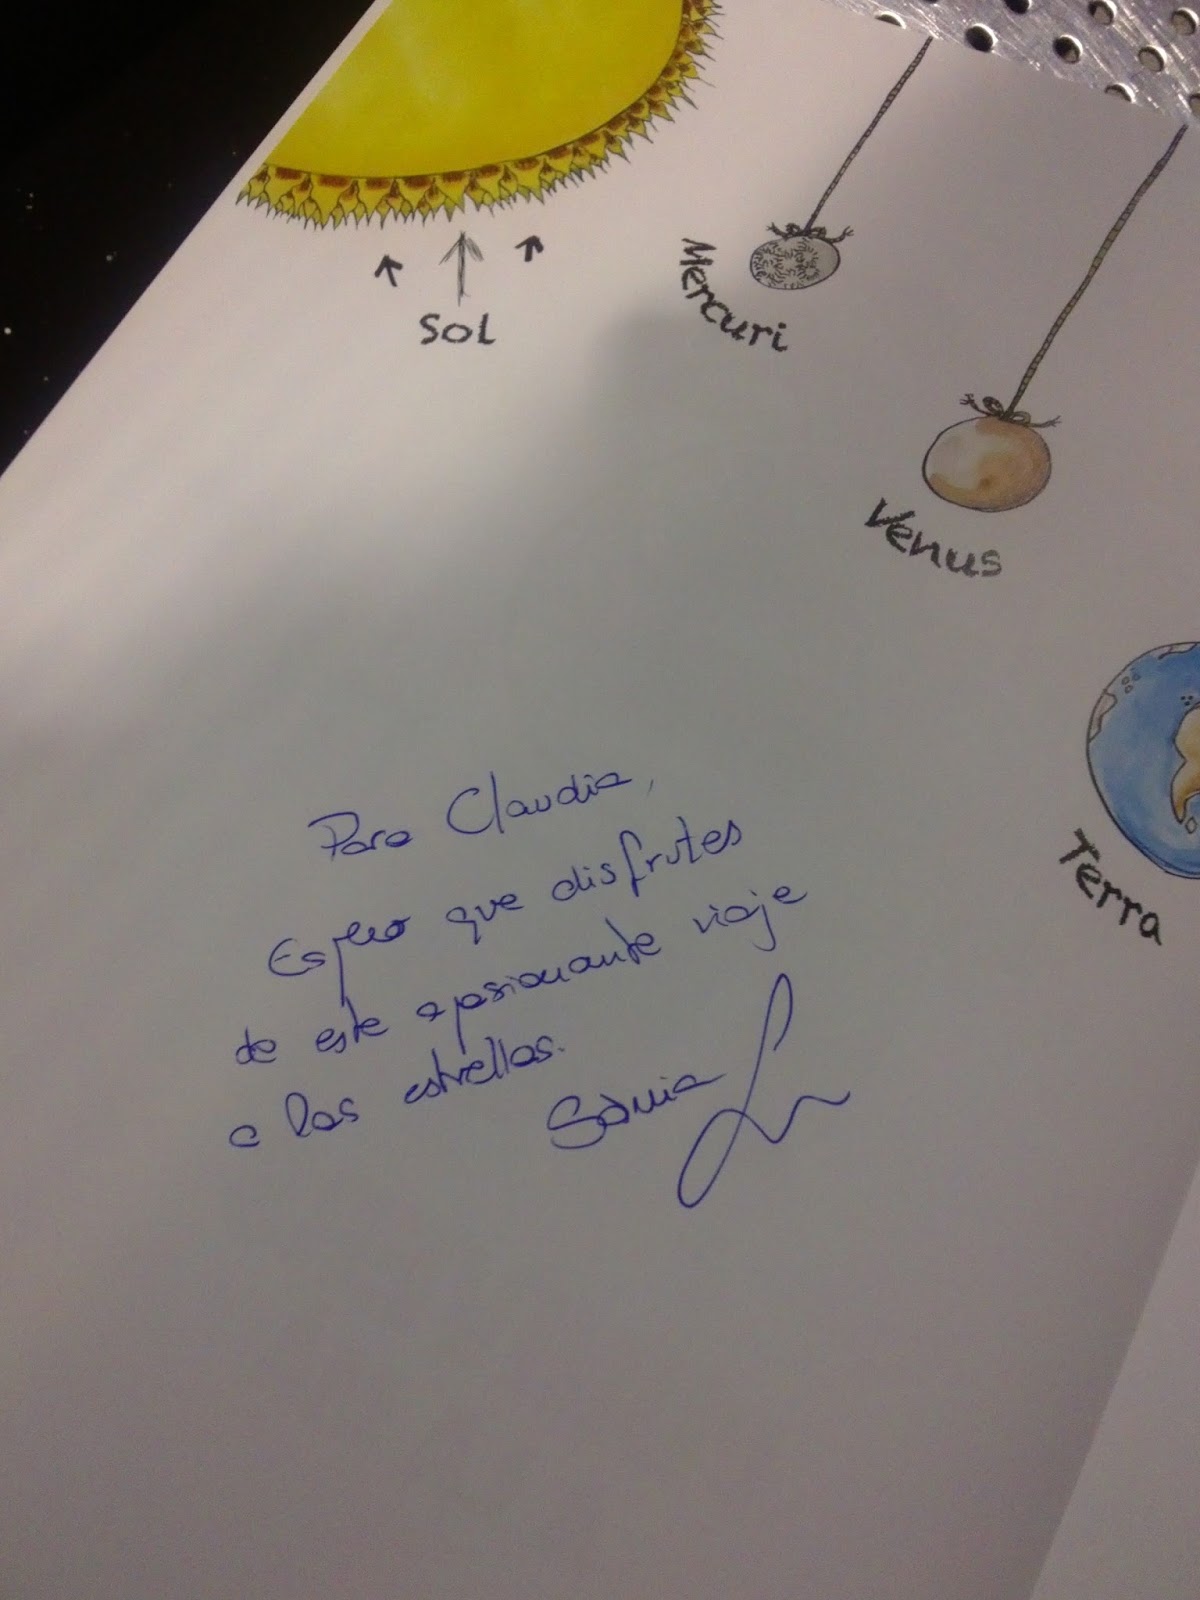 Sol
Mercuri
Venus
Terra
Para Claudia,
Espero que disfrutes
de este apasionante viaje
a las estrellas.
Sònia